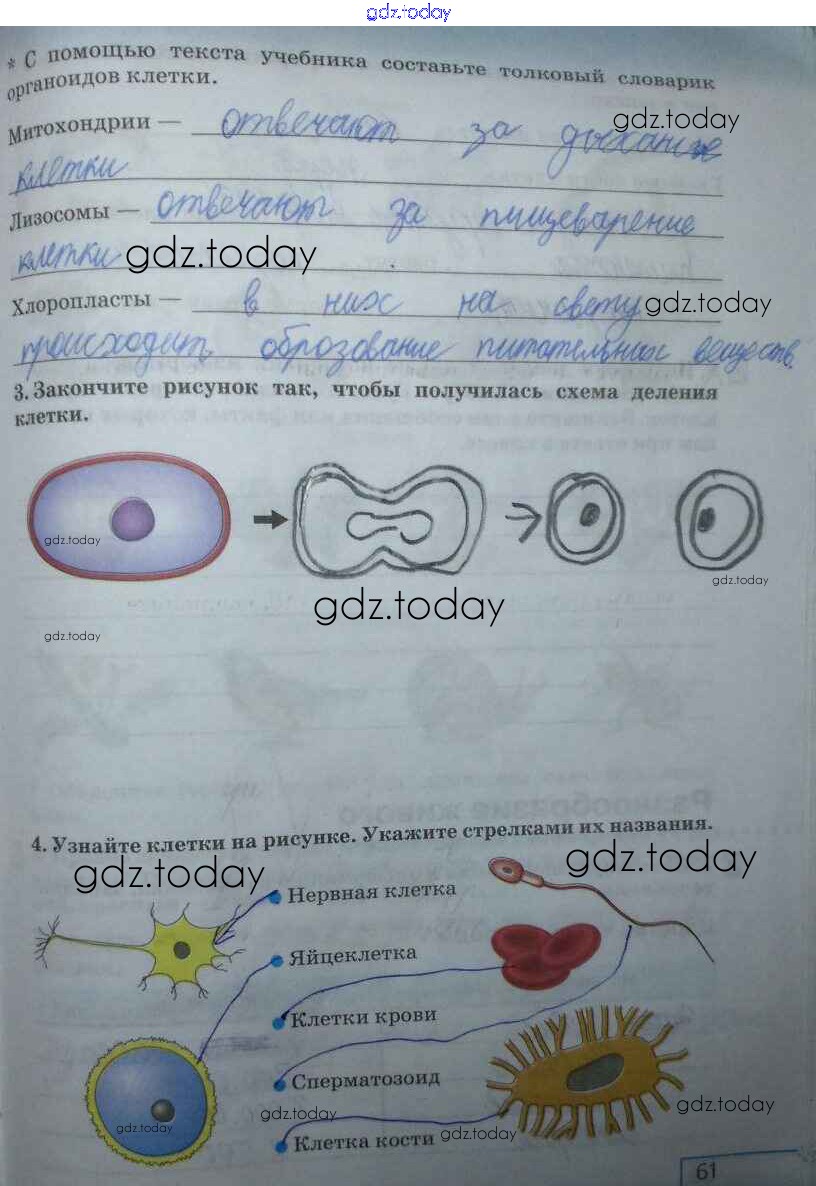 gdz.today
* С помощью текста учебника составьте толковый словарик
органоидов клетки.
Митохондрии — отвечают за дыхание
gdz.today
клетки
Лизосомы — отвечают за пищеварение
клетки gdz.today
Хлоропласты — в них на свету gdz.today
происходит образование питательных веществ.
3. Закончите рисунок так, чтобы получилась схема деления
клетки.
gdz.today
gdz.today
gdz.today
gdz.today
4. Узнайте клетки на рисунке. Укажите стрелками их названия.
gdz.today
gdz.today
Нервная клетка
Яйцеклетка
Клетки крови
Сперматозоид
gdz.today
gdz.today
gdz.today
Клетка кости gdz.today
61